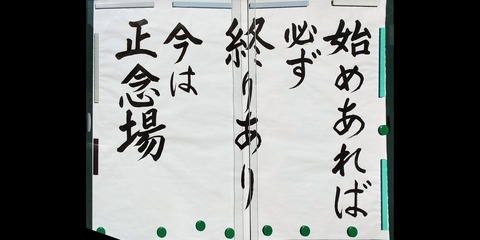 始めあれば
必ず
終りあり
今は
正念場